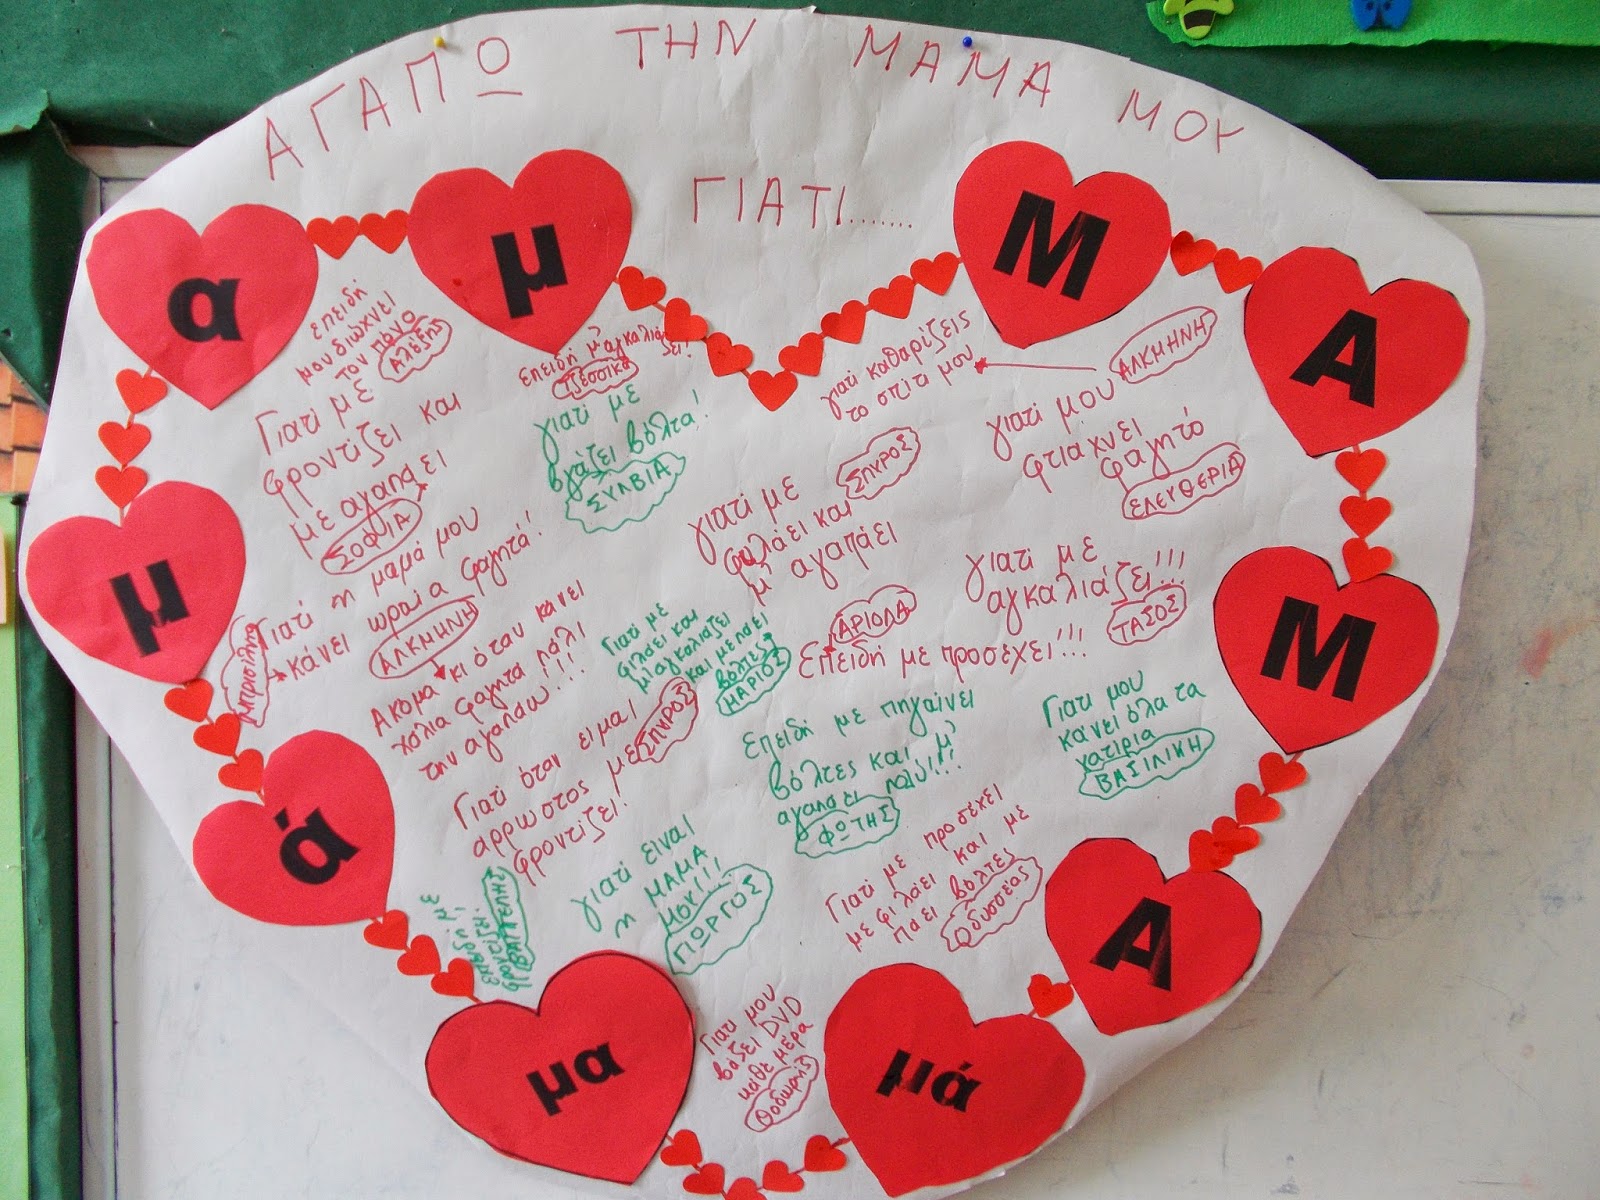 ΑΓΑΠΩ ΤΗΝ ΜΑΜΑ ΜΟΥ
ΓΙΑΤΙ.......
α
μ
Μ
Α
μ
Μ
ά
Α
μα
μά
επειδή
μου διώχνει
τον πόνο
Αλέξης
Γιατί με
φροντίζει και
με αγαπαει
ΣΟΦΙΑ
επειδή μ'αγκαλιά
ζει!
ΤΖΕΣΣΙΚΑ
γιατί με
βγάζει βόλτα!
ΣΥΛΒΙΑ
γιατί καθαρίζεις
το σπίτι μου
ΑΛΚΜΗΝΗ
γιατί μου
φτιάχνει
φαγητό
ΕΛΕΥΘΕΡΙΑ
γιατί με
φυλάει και
μ' αγαπάει
ΣΠΥΡΟΣ
Γιατί η μαμά μου
κάνει ωραία φαγητά!!
ΑΛΚΜΗΝΗ
Ακομα κι όταν κανει
χάλια φαγητα πάλι
την αγαπαω!!!
Γιατί με
φιλάει και
μ'αγκαλιαζει
και με παει
βόλτες
ΜΑΡΙΟΣ
ΑΡΙΟΛΑ
Επειδή με προσέχει!!!
γιατί με
αγκαλιάζει!!!
ΤΑΣΟΣ
Γιατί όταν ειμαι
αρρωστος με
φροντίζει!
ΣΠΥΡΟΣ
Επειδή με πηγαίνει
βόλτες και μ'
αγαπαει πολύ!!!
ΦΩΤΗΣ
Γιατί μου
κανει όλα τα
χατίρια
ΒΑΣΙΛΙΚΗ
γιατί ειναι
η ΜΑΜΑ
ΜΟΥ!!!
ΓΙΩΡΓΟΣ
Γιατί με προσέχει
με φιλάει και με
πάει βόλτες
Οδυσσέας
επειδή με
φροντίζει
Γιατί μου
βάζει DVD
κάθε μέρα
Θοδωρής